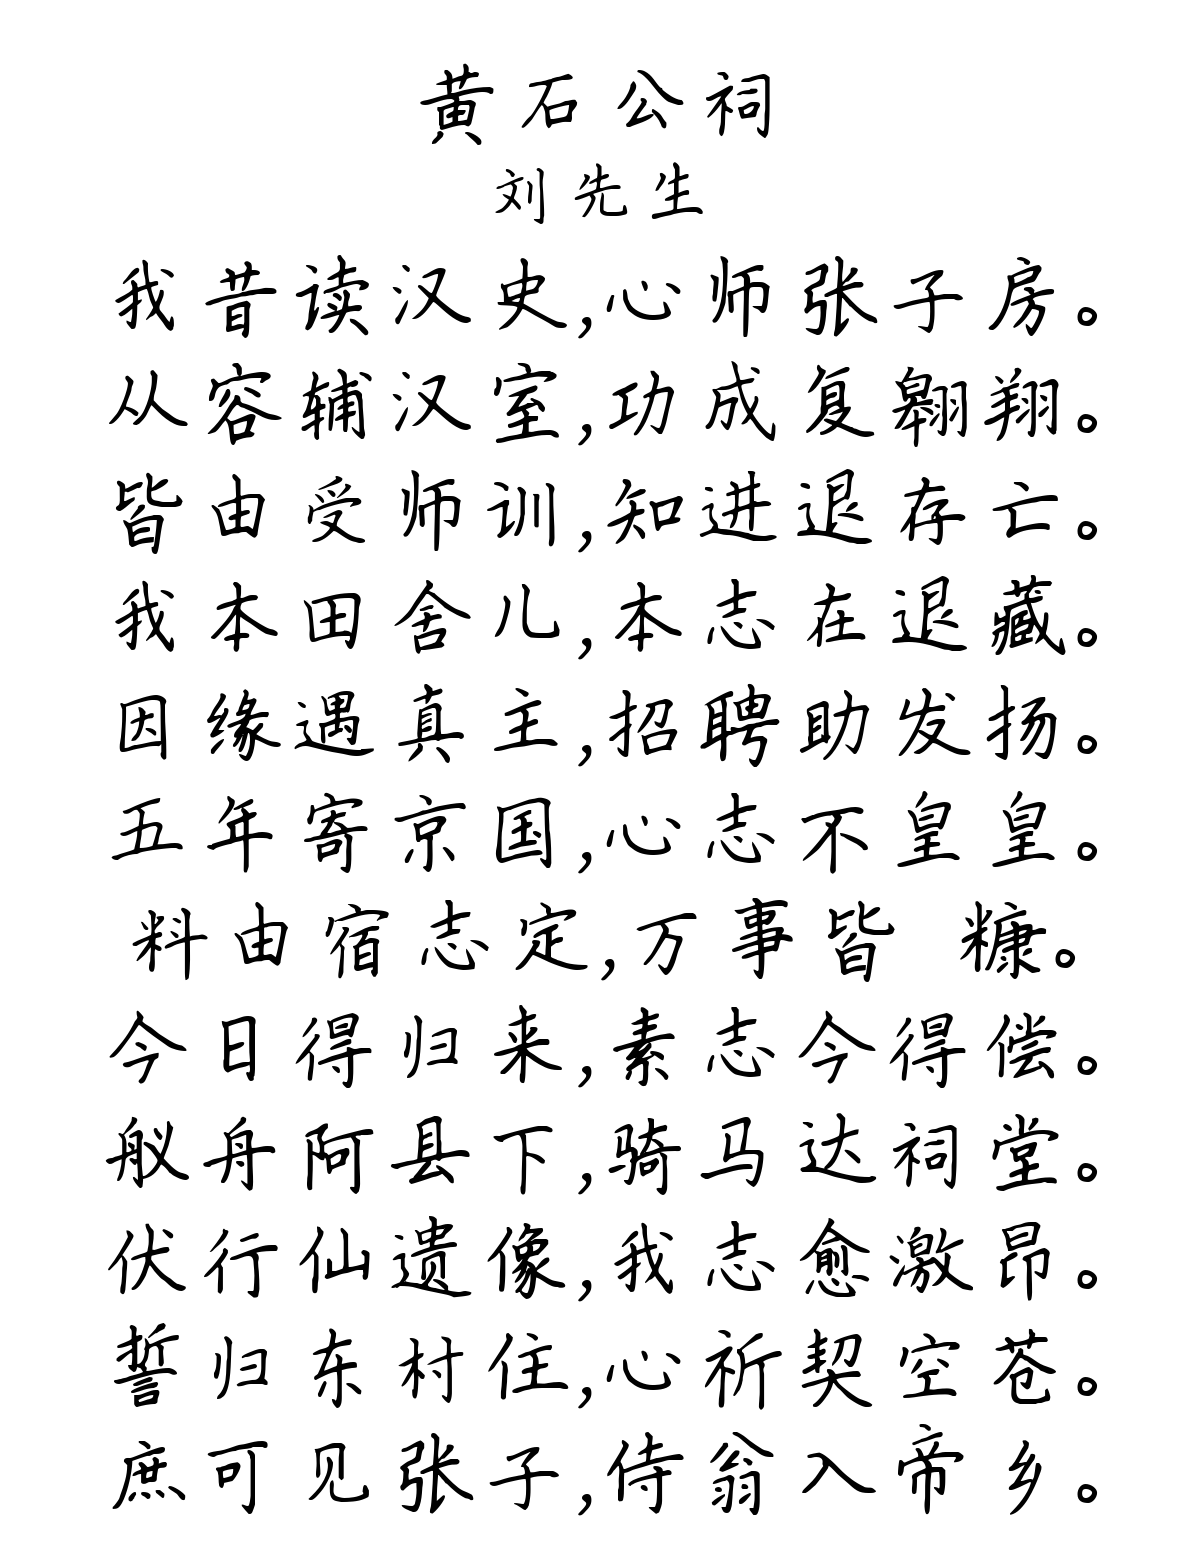 黄石公祠
刘先生
我昔读汉史,心师张子房。
从容辅汉室,功成复翱翔。
皆由受师训,知进退存亡。
我本田舍儿,本志在退藏。
因缘遇真主,招聘助发扬。
五年寄京国,心志不皇皇。
料由宿志定,万事皆 糠。
今日得归来,素志今得偿。
舣舟阿县下,骑马达祠堂。
伏行仙遗像,我志愈激昂。
誓归东村住,心祈契空苍。
庶可见张子,侍翁入帝乡。